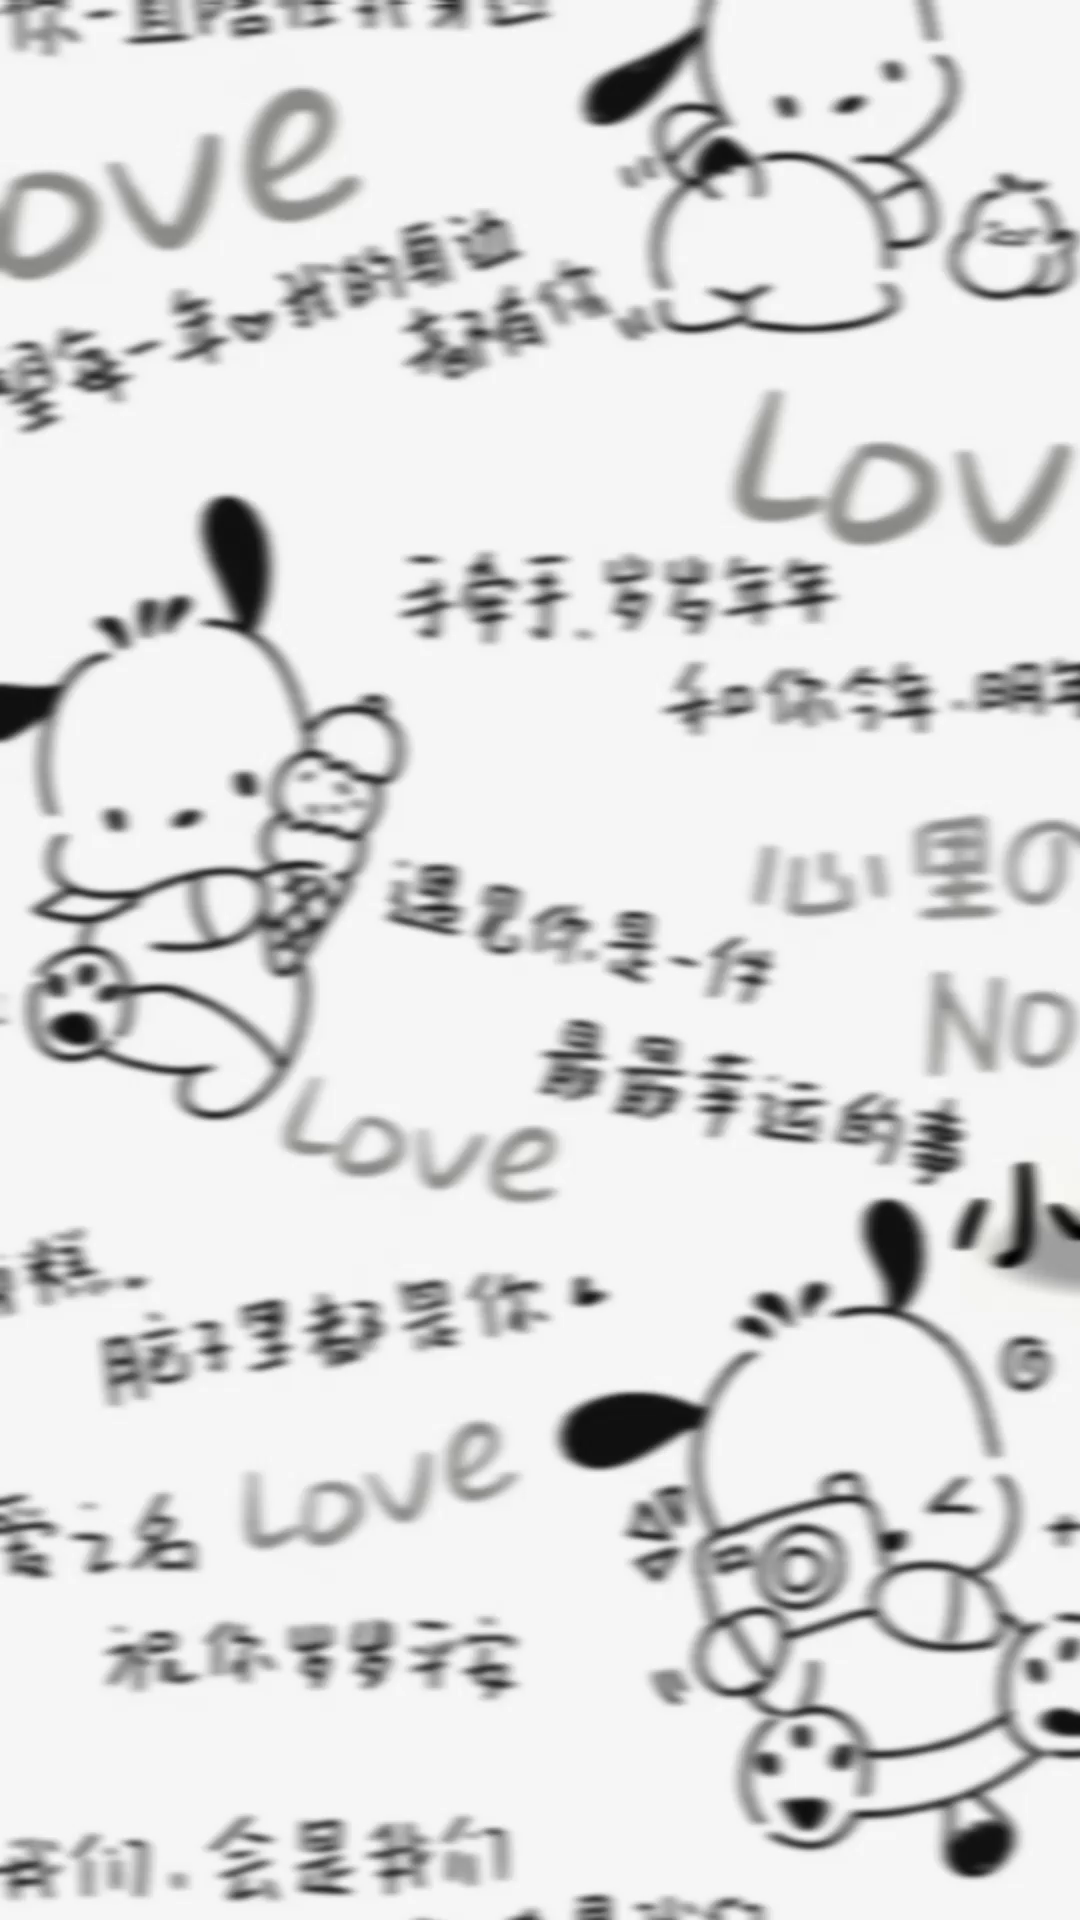 你一直陪在我身边
ove
望每一年♡我的身边
都有你
Lov
手牵手.岁岁年年
和你今年.明年
心里
No
遇见你.是一件
最最幸运的事
Love
小
糕.
脑子里都是你
Love
爱之名
祝你岁岁平安
我们.会是我们